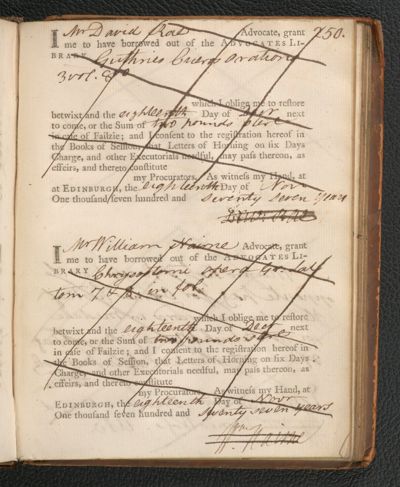 I Mr David Rae Advocate, grant 250.
me to have borrowed out of the ADVOCATES LI-
BRARY Guthries Cicero's orations
3 vol. 8vo
which I oblige me to restore
betwixt and the eighteenth Day of Decr next
to come, or the Sum of two pounds sterl
in case of Failzie; and I consent to the registration hereof in
the Books of Session, that Letters of Horning on six Days
Charge, and other Executorials needful, may pass thereon, as
effeirs, and thereto constitute
my Procurators. As witness my Hand, at
at EDINBURGH, the eighteenth Day of Novr
One thousand seven hundred and seventy seven years
I Mr William Nairne Advocate, grant
me to have borrowed out of the ADVOCATES LI-
BRARY Chrysostomi opera Gr. Lat
tom 7 & in fol.
which I oblige me to restore
betwixt and the eighteenth Day of Decr next
to come, or the Sum of two pounds sterl
in case of Failzie; and I consent to the registration hereof in
the Books of Session, that Letters of Horning on six Days
Charge, and other Executorials needful, may pass thereon, as
effeirs, and thereto constitute
my Procurators. As witness my Hand, at
EDINBURGH, the eighteenth Day of Novr
One thousand seven hundred and seventy seven years
Nairne